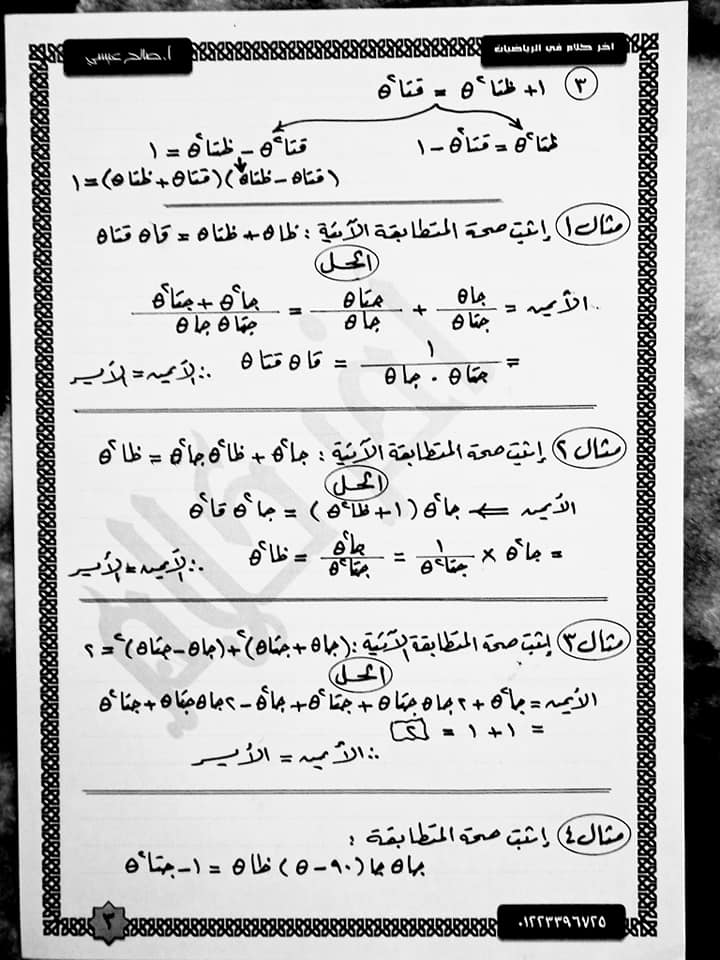 آخر كلام في الرياضيات
أ. صالح عيسى
٣ ١ + ظتا²θ = قتا²θ
ظتا²θ = قتا²θ - ١
قتا²θ - ظتا²θ = ١
(قتاθ - ظتاθ)(قتاθ + ظتاθ) = ١
مثال ١ إثبت صحة المتطابقة الآتية : ظاθ + ظتاθ = قاθ قتاθ
الحل
الأيمن = جاθ/جتاθ + جتاθ/جاθ = (جا²θ + جتا²θ)/(جتاθ جاθ)
= ١/(جتاθ . جاθ) = قاθ قتاθ ∴ الأيمن = الأيسر
مثال ٢ إثبت صحة المتطابقة الآتية : جا²θ + ظا²θ جا²θ = ظا²θ
الحل
الأيمن ⇐ جا²θ (١ + ظا²θ) = جا²θ قا²θ
= جا²θ × ١/جتا²θ = جا²θ/جتا²θ = ظا²θ ∴ الأيمن = الأيسر
مثال ٣ إثبت صحة المتطابقة الآتية : (جاθ + جتاθ)² + (جاθ - جتاθ)² = ٢
الحل
الأيمن = جا²θ + ٢ جاθ جتاθ + جتا²θ + جا²θ - ٢ جاθ جتاθ + جتا²θ
= ١ + ١ = ٢
∴ الأيمن = الأيسر
مثال ٤ إثبت صحة المتطابقة :
جاθ جا(٩٠ - θ) ظاθ = ١ - جتا²θ
٠١٢٢٣٣٩٦٧٢٥
٣